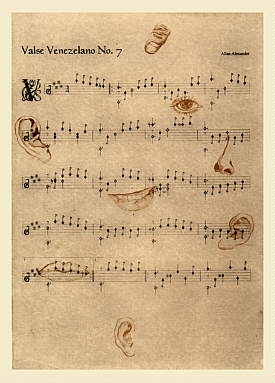 Valse Venezelano No. 7
Allan Alexander